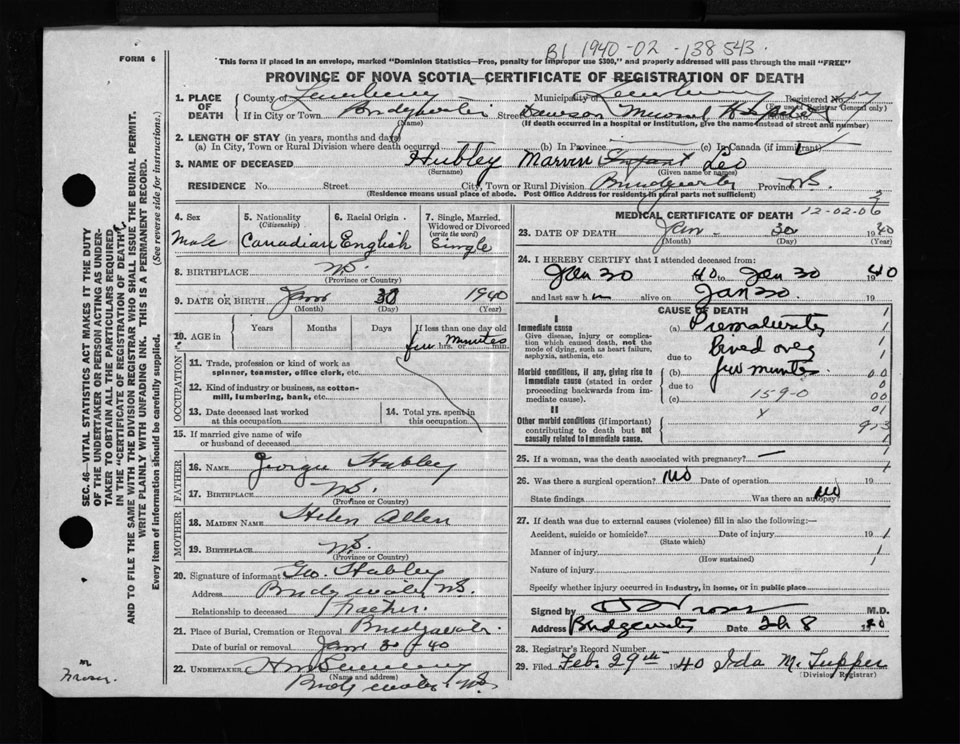 B1 1940-02-138543.
FORM 6
This form if placed in an envelope, marked "Dominion Statistics—Free, penalty for improper use $300," and properly addressed will pass through the mail "FREE"
PROVINCE OF NOVA SCOTIA—CERTIFICATE OF REGISTRATION OF DEATH
1. PLACE OF DEATH
County of Lunenburg Municipality of Lunenburg Registered No.
(For use of Registrar General only)
If in City or Town Bridgewater Street Dawson Memorial Hospital House No.
(Name) (If death occurred in a hospital or institution, give the name instead of street and number)
2. LENGTH OF STAY (in years, months and days)
(a) In City, Town or Rural Division where death occurred (b) In Province (c) In Canada (if immigrant)
3. NAME OF DECEASED Hubley Marven Infant Leo
(Surname) (Given name or names)
RESIDENCE No. Street City, Town or Rural Division Bridgewater Province NS.
(Residence means usual place of abode. Post Office Address for residents in rural parts not sufficient)
4. Sex
Male
5. Nationality
(Citizenship)
Canadian
6. Racial Origin
English
7. Single, Married, Widowed or Divorced
(write the word)
Single
8. BIRTHPLACE NS.
(Province or Country)
9. DATE OF BIRTH Jan 30 1940
(Month) (Day) (Year)
10. AGE in
Years Months Days If less than one day old
few minutes
hrs. or min.
OCCUPATION
11. Trade, profession or kind of work as spinner, teamster, office clerk, etc.
12. Kind of industry or business, as cotton-mill, lumbering, bank, etc.
13. Date deceased last worked at this occupation
14. Total yrs. spent in this occupation
15. If married give name of wife or husband of deceased
FATHER
16. NAME George Hubley
17. BIRTHPLACE NS.
(Province or Country)
MOTHER
18. MAIDEN NAME Helen Allen
19. BIRTHPLACE NS.
(Province or Country)
20. Signature of informant Geo. Hubley
Address Bridgewater NS.
Relationship to deceased Father.
21. Place of Burial, Cremation or Removal Bridgewater
Date of burial or removal Jan 30 40
22. UNDERTAKER
(Name and address)
Bridgewater NS
MEDICAL CERTIFICATE OF DEATH 12-02-06
23. DATE OF DEATH Jan. 30 1940
(Month) (Day) (Year)
24. I HEREBY CERTIFY that I attended deceased from:
Jan 30 1940 to Jan 30 1940
and last saw h m alive on Jan 30. 19
CAUSE OF DEATH
I
Immediate cause
Give disease, injury or complication which caused death, not the mode of dying, such as heart failure, asphyxia, asthenia, etc
(a) Prematurity
due to lived over
Morbid conditions, if any, giving rise to immediate cause (stated in order proceeding backwards from immediate cause).
(b) few minutes
due to
(c) 159-0
II
Other morbid conditions (if important) contributing to death but not causally related to immediate cause.
x
913
25. If a woman, was the death associated with pregnancy? —
26. Was there a surgical operation? No Date of operation 19
State findings Was there an autopsy? No
27. If death was due to external causes (violence) fill in also the following:—
Accident, suicide or homicide? Date of injury 19
(State which)
Manner of injury
(How sustained)
Nature of injury
Specify whether injury occurred in industry, in home, or in public place
Signed by M.D.
Address Bridgewater Date Feb 8 1940
28. Registrar's Record Number
29. Filed Feb. 29th 1940 Ida M. Tupper
(Division Registrar)
SEC. 46—VITAL STATISTICS ACT MAKES IT THE DUTY
OF THE UNDERTAKER OR PERSON ACTING AS UNDER-
TAKER TO OBTAIN ALL THE PARTICULARS REQUIRED
IN THE "CERTIFICATE OF REGISTRATION OF DEATH"
AND TO FILE THE SAME WITH THE DIVISION REGISTRAR WHO SHALL ISSUE THE BURIAL PERMIT.
WRITE PLAINLY WITH UNFADING INK. THIS IS A PERMANENT RECORD.
Every item of information should be carefully supplied. (See reverse side for instructions.)